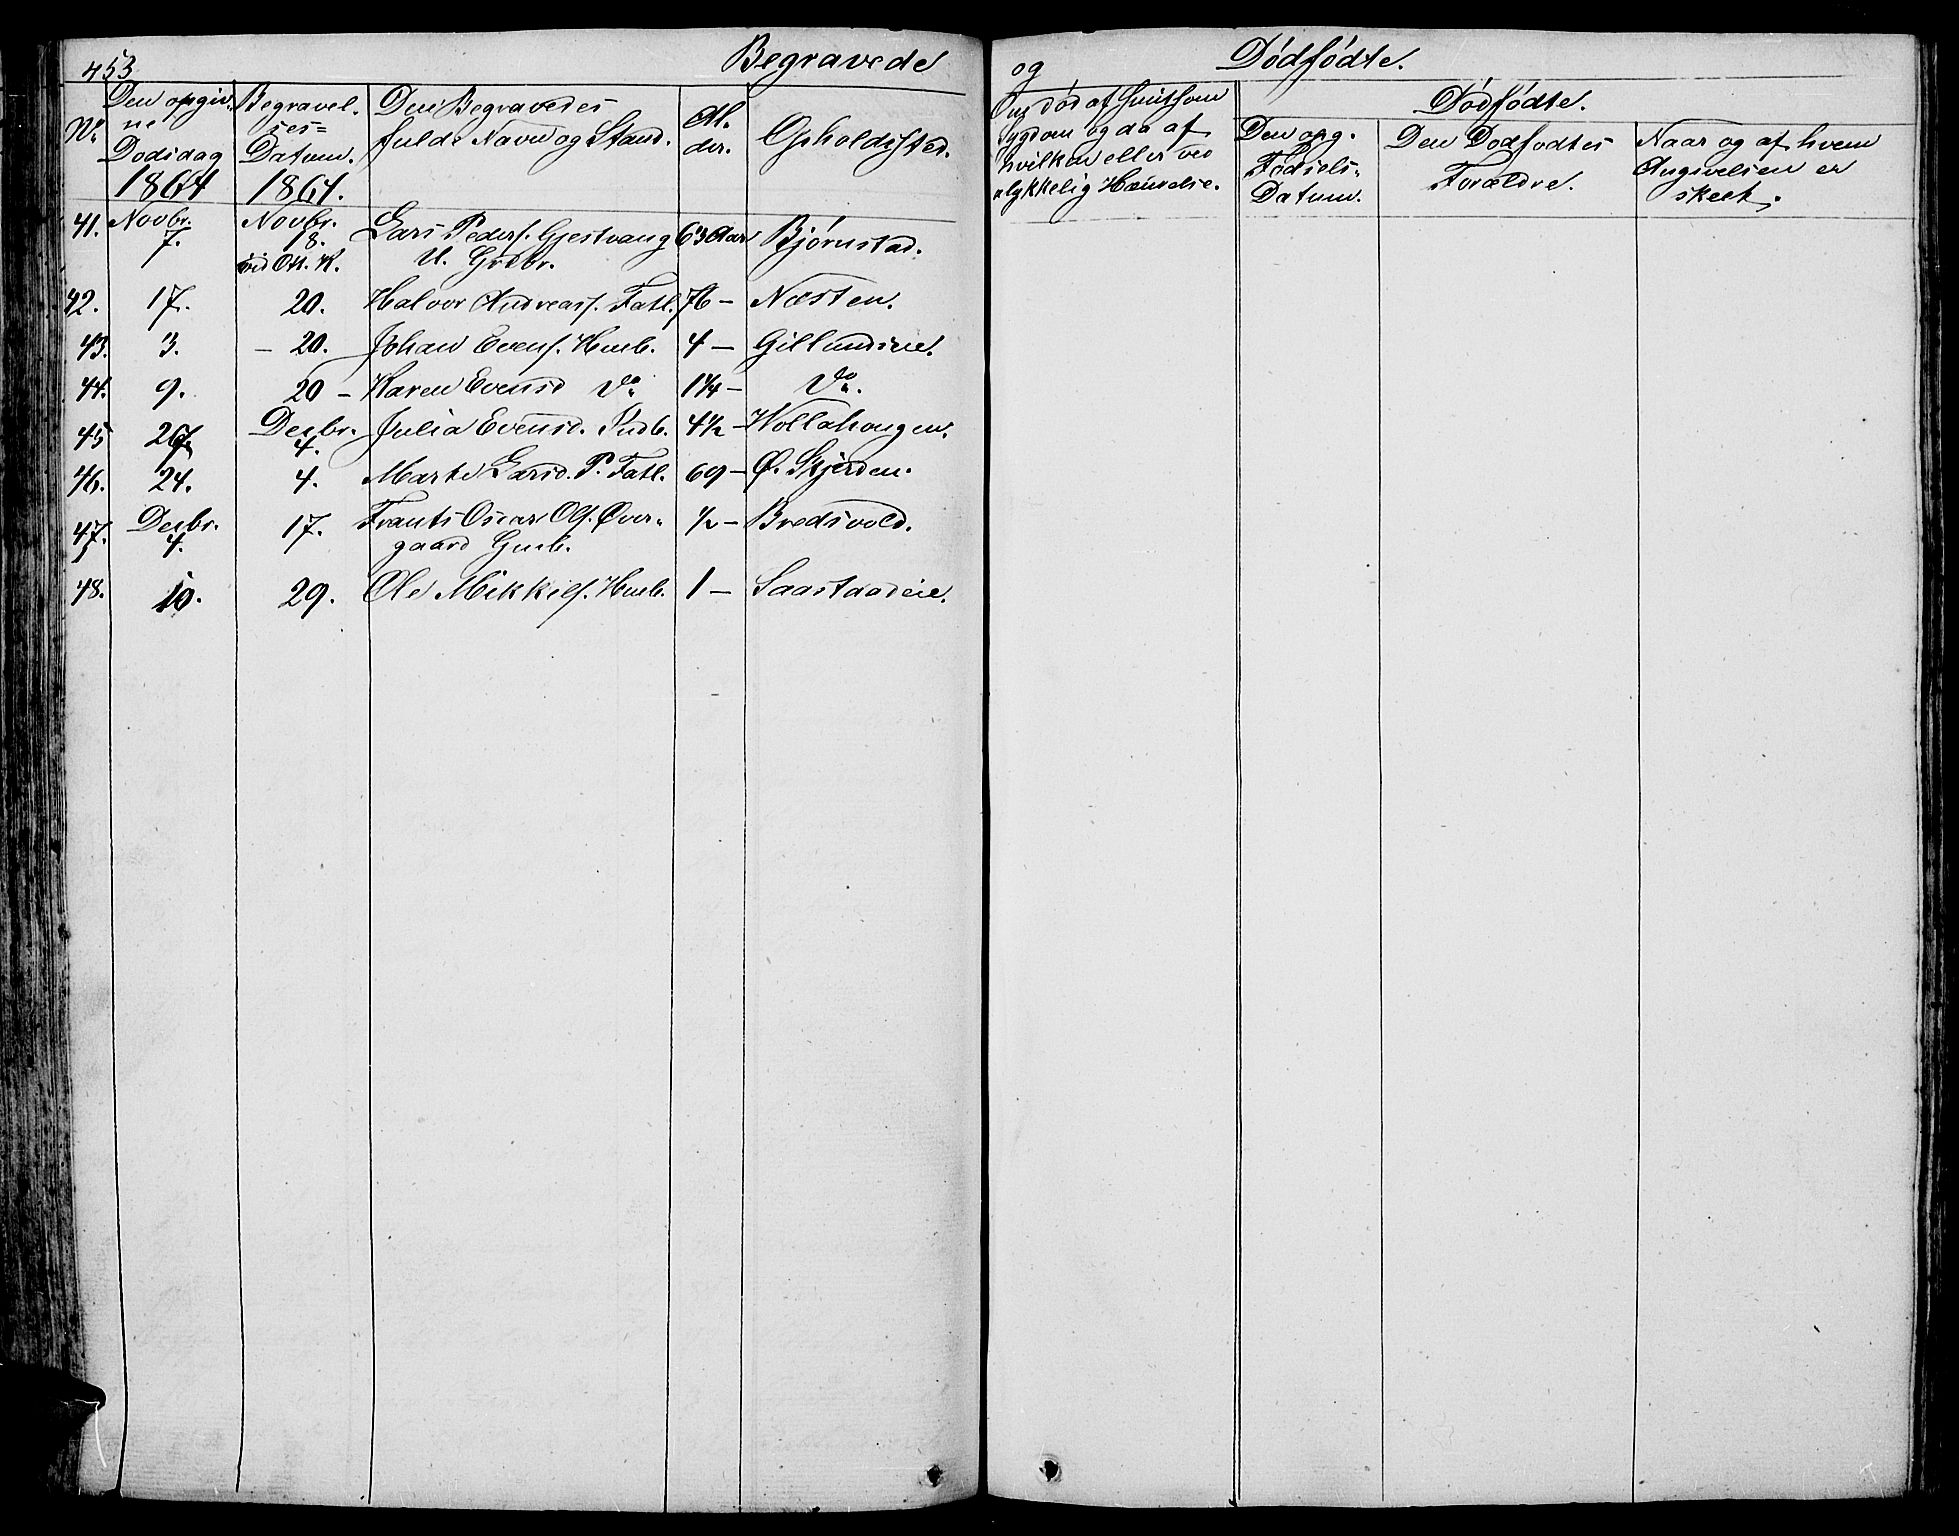 453 Begravede og Dødfødte.
No. Den opgivne Dødsdag 1864 Begravelses-Datum. 1864. Den Begravedes fulde Navn og Stand. Alder. Opholdssted. Om død af Smitsom Sygdom og da af hvilken eller ved ulykkelig Hændelse. Dødfødte.
Den opg. Fødsels-Datum. Den Dødfødtes Forældre. Naar og af hvem Angivelsen er skeet.
41. Novbr. 7. Novbr. 18. ved Ott. K. Lars Peders. Gjestvang U. Grdbr. 63 Aar Bjørnstad.
42. 17. 20. Halvor Andreass. Fatl. 76 — Næsten.
43. 3. — 20. Johan Evens. Husb. 4 — Gillundseie.
44. 9. 20 — Karen Evensd Do. 1 1/4 — Do.
45 26. Decbr. 4. Julia Evensd. Indb. 4 1/2 — Vollahaugen.
46. 24. 4. Marte Larsd. P. Fatl. 69 — Ø. Skjerden.
47. Decbr. 4. 17. Frants Oscar Ols. Øver-
gaard Gmb. 1/2 — Bredsvold.
48. 10. 29. Ole Mikkels. Husb. 1 — Saastadeie.